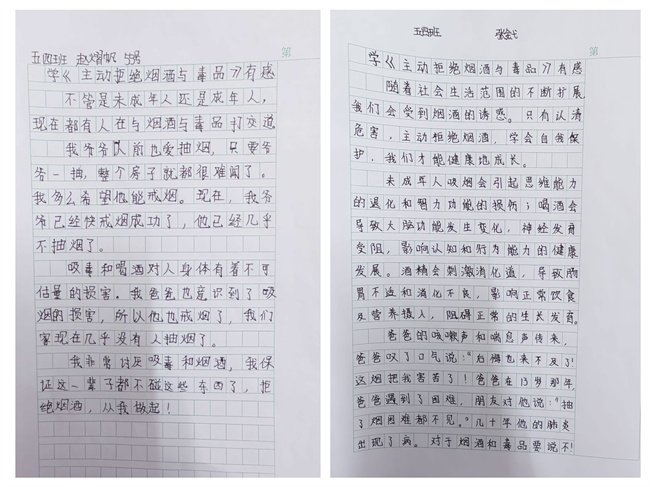 五四班 赵熠帆
学《主动拒绝烟酒与毒品》有感
不管是未成年人还是成年人，
现在都有人在与烟酒与毒品打交道
我爷爷以前也爱抽烟，只要爷
爷一抽，整个房子就都很难闻了。
我多么希望他能戒烟。现在，我爷
爷已经快戒烟成功了，他已经几乎
不抽烟了。
吸毒和喝酒对人身体有着不可
估量的损害。我爸爸也意识到了吸
烟的损害，所以他也戒烟了，我们
家现在几乎没有人抽烟了。
我非常讨厌吸毒和烟酒，我保
证这一辈子都不碰这些东西了，拒
绝烟酒，从我做起！
第
五四班
学《主动拒绝烟酒与毒品》有感
随着社会生活范围的不断扩展
我们会受到烟酒的诱惑。只有认清
危害，主动拒绝烟酒，学会自我保
护，我们才能健康地成长。
未成年人吸烟会引起思维能力
的退化和智力功能的损伤；喝酒会
导致大脑功能发生变化，神经发育
受阻，影响认知和行为能力的健康
发展。酒精会刺激消化道，导致肠
胃不适和消化不良，影响正常饮食
及营养摄入，阻碍正常的生长发育。
爸爸的咳嗽声和喘息声传来，
爸爸叹了口气说：“后悔也来不及了！
这烟把我害苦了！爸爸在13岁那年，
爸爸遇到了困难，朋友对他说：“抽
了烟困难都不见。”几十年他的肺炎
出现了病。对于烟酒和毒品要说不！
第